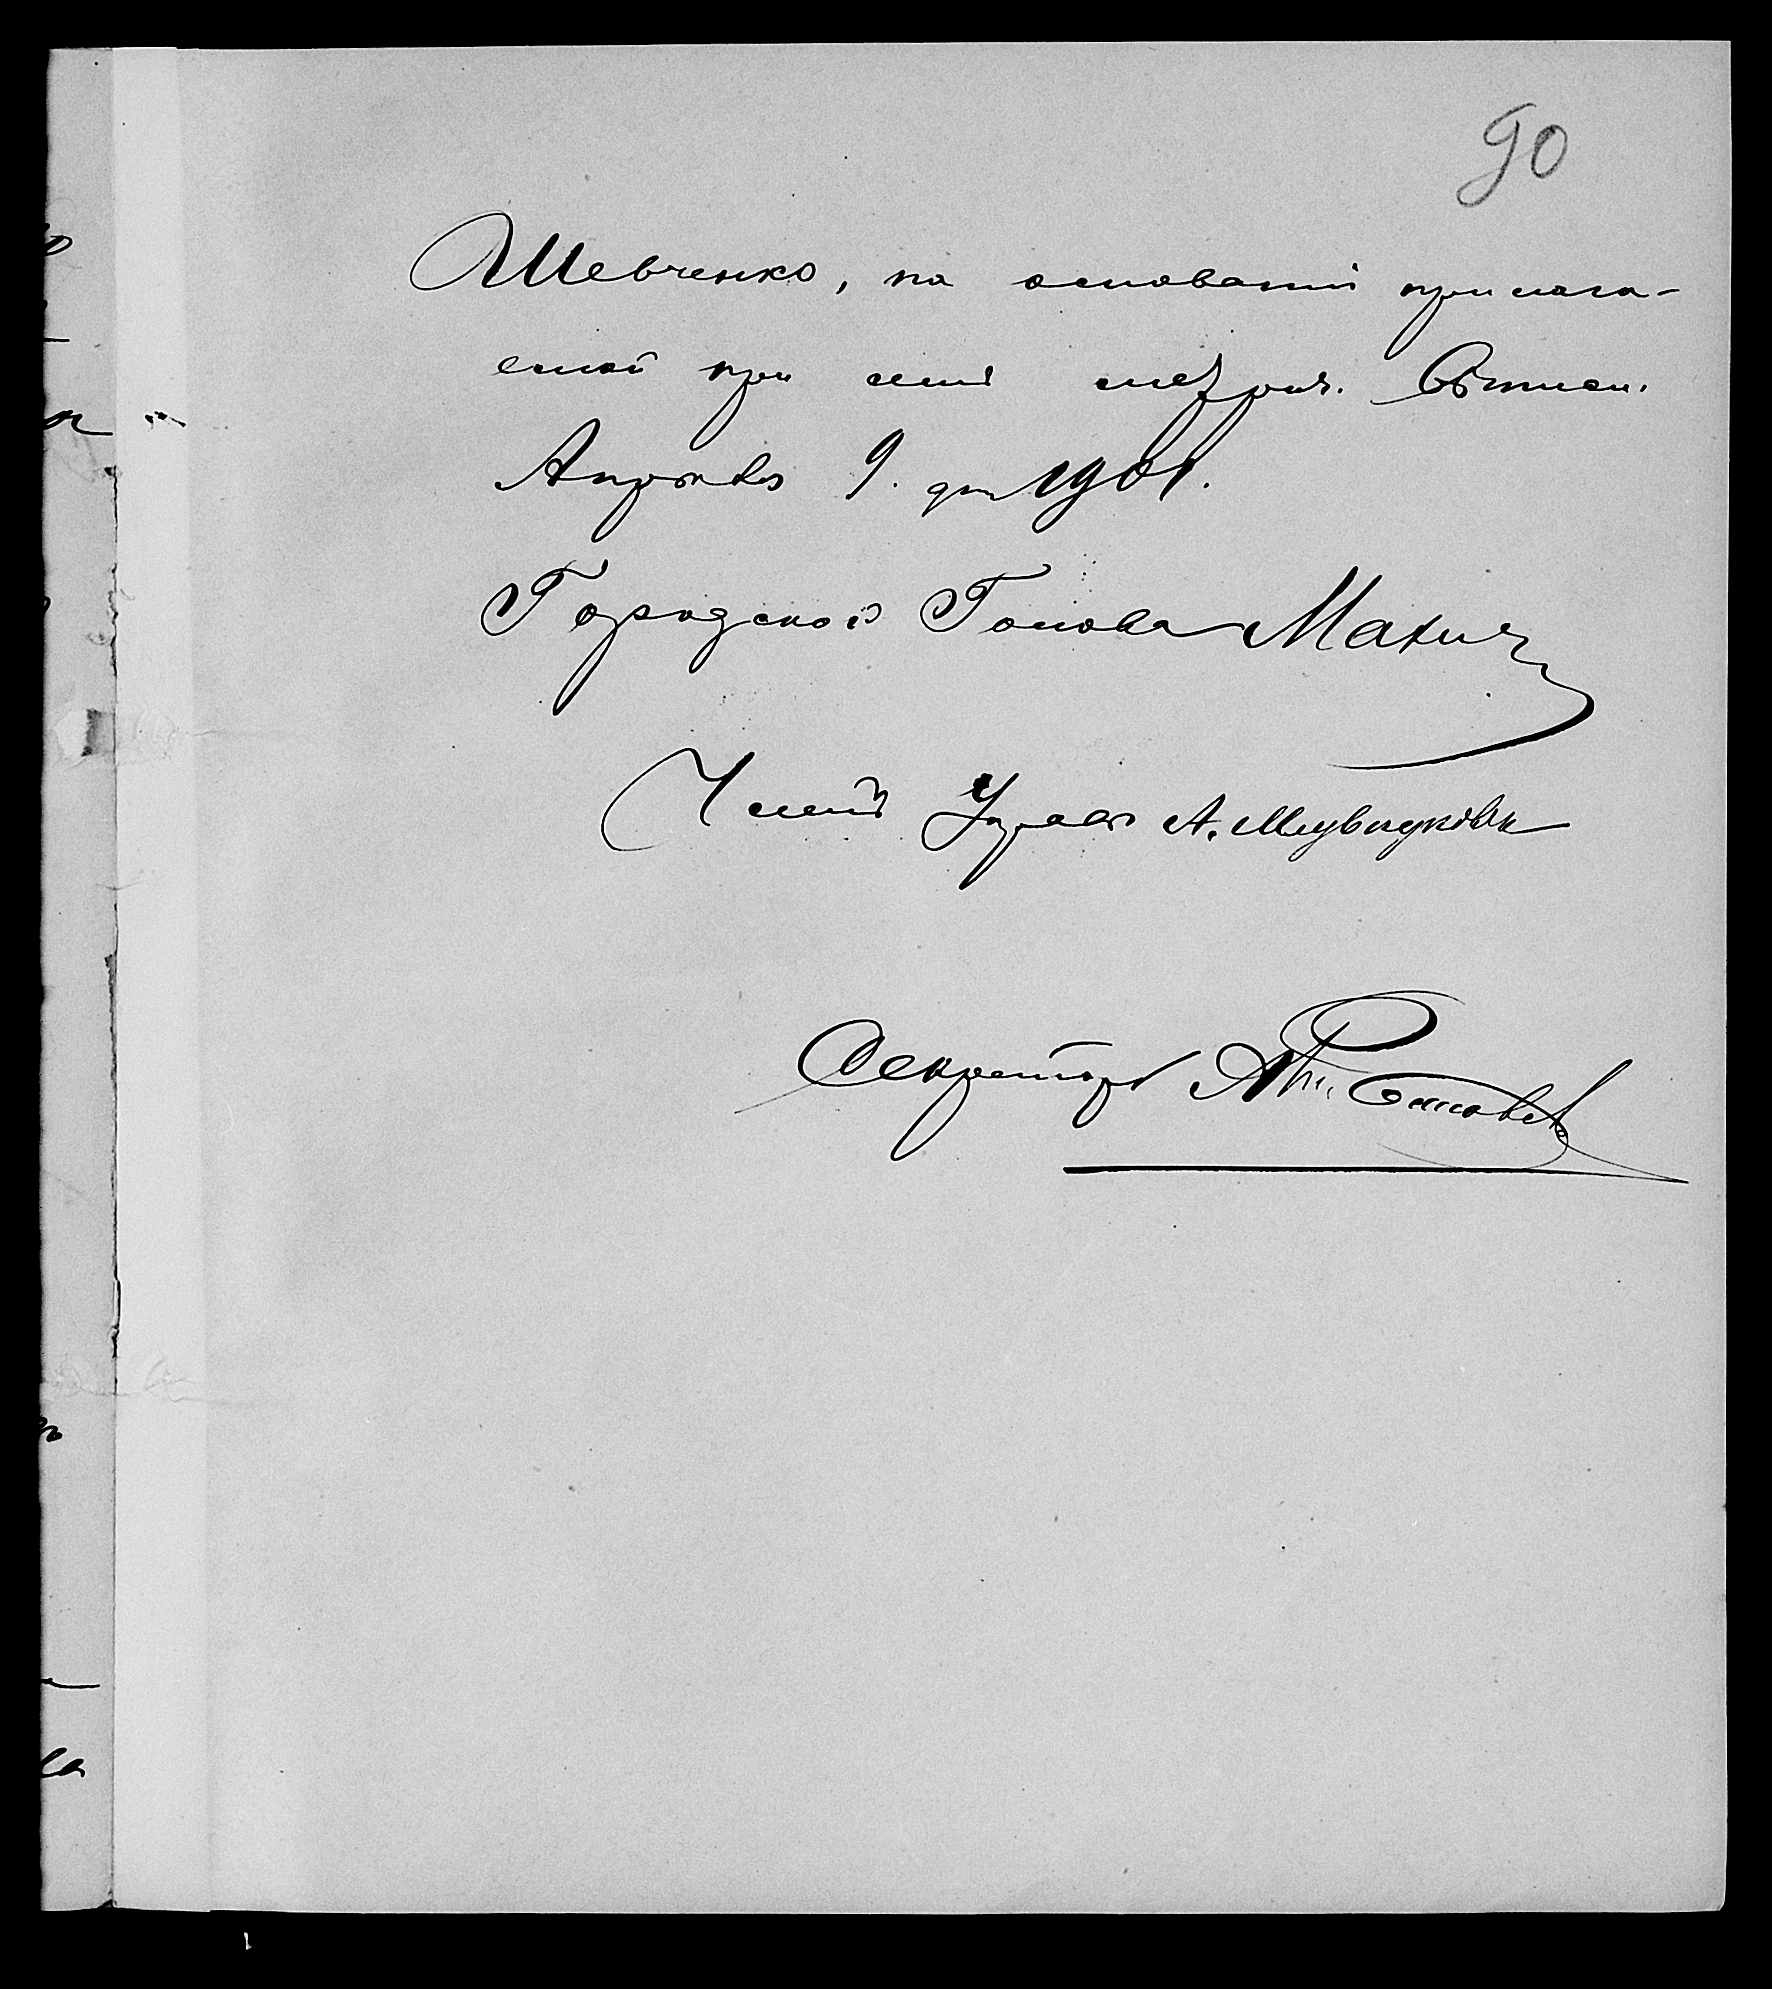 90
Шевченко, на основанiи прилага-
емой при семъ метрич. выписи.
Апрѣля 9. дня 1901.
Городской Голова Махин
Членъ Управы А. Медвидкова
Секретарь